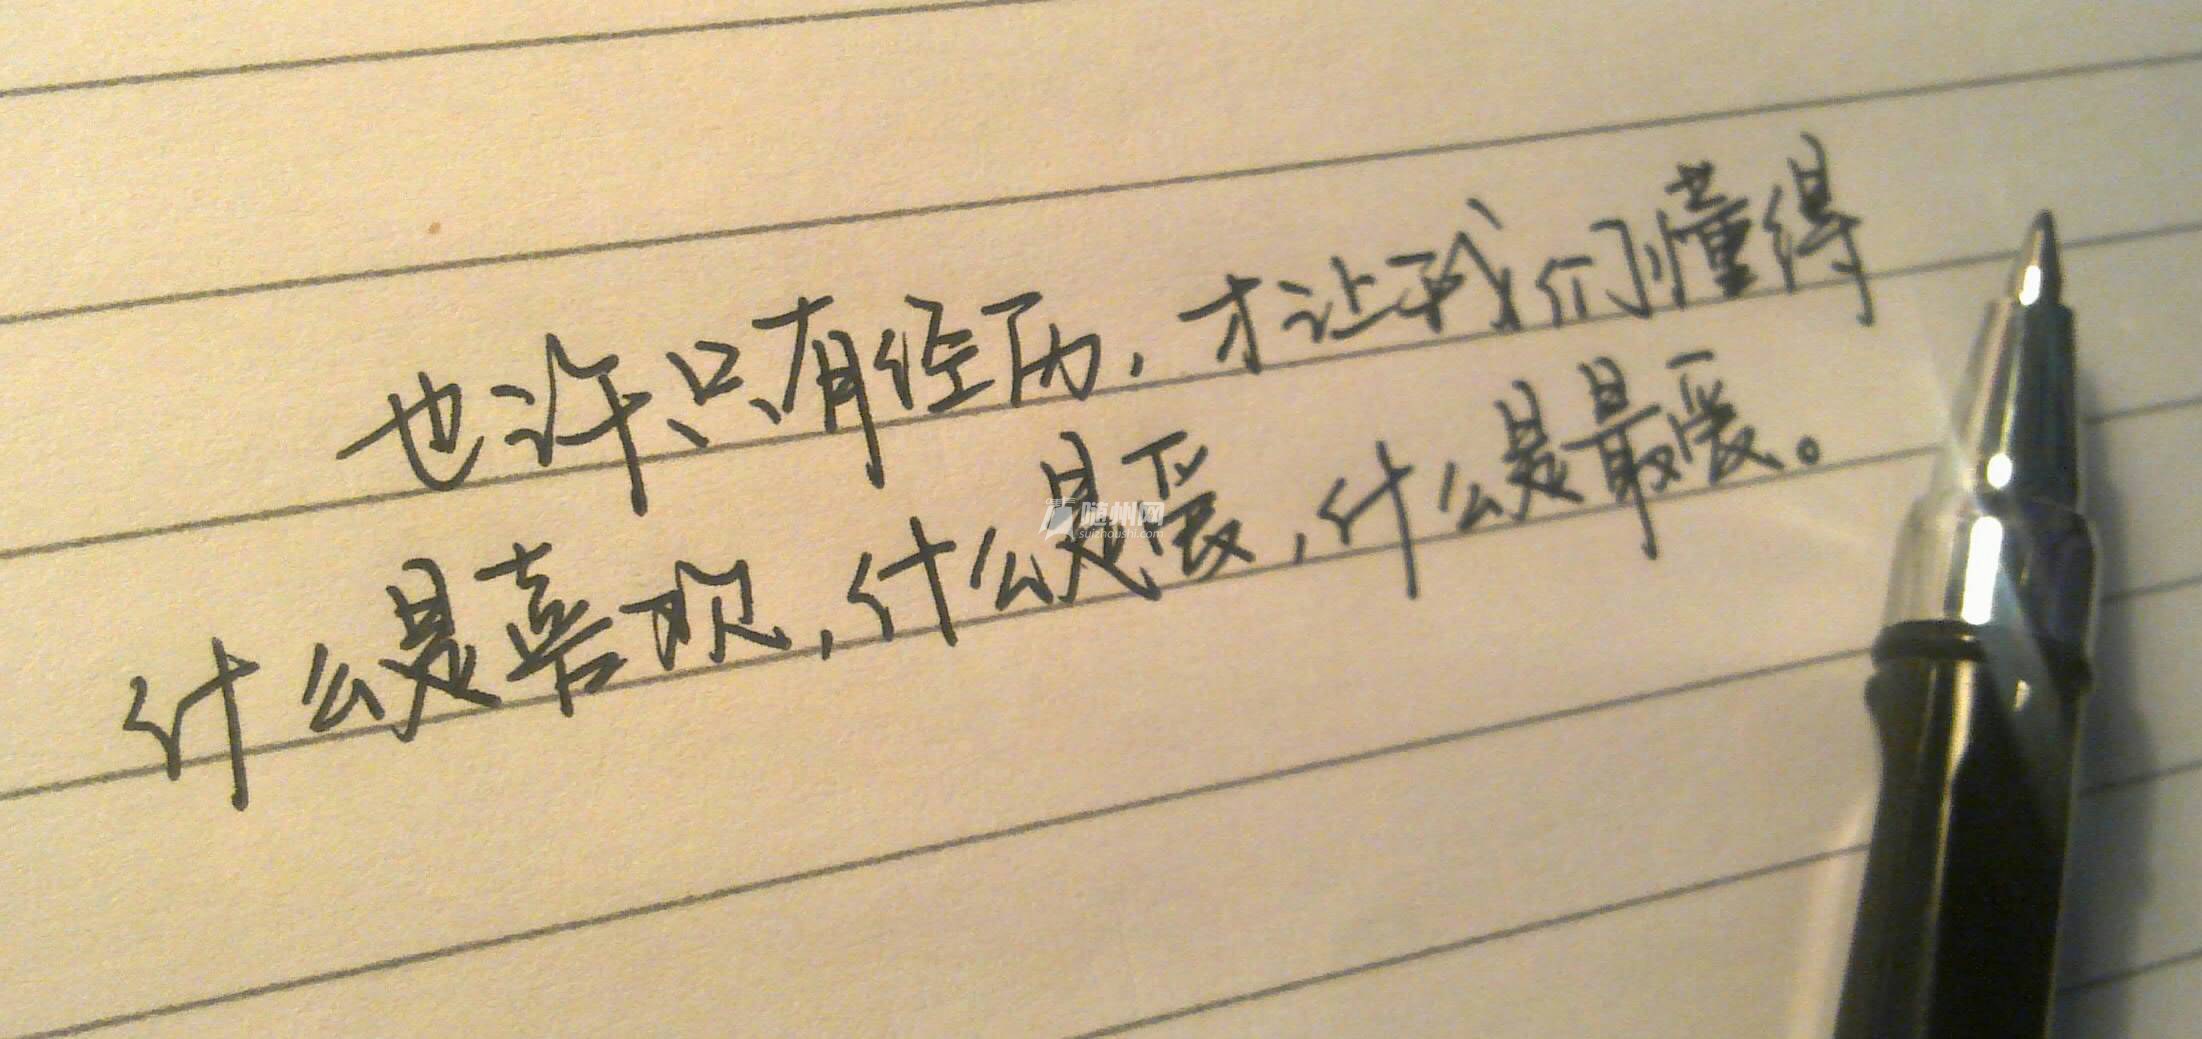 也许只有经历，才让我们懂得
什么是喜欢，什么是爱，什么是最爱。
随州网
suizhoushi.com